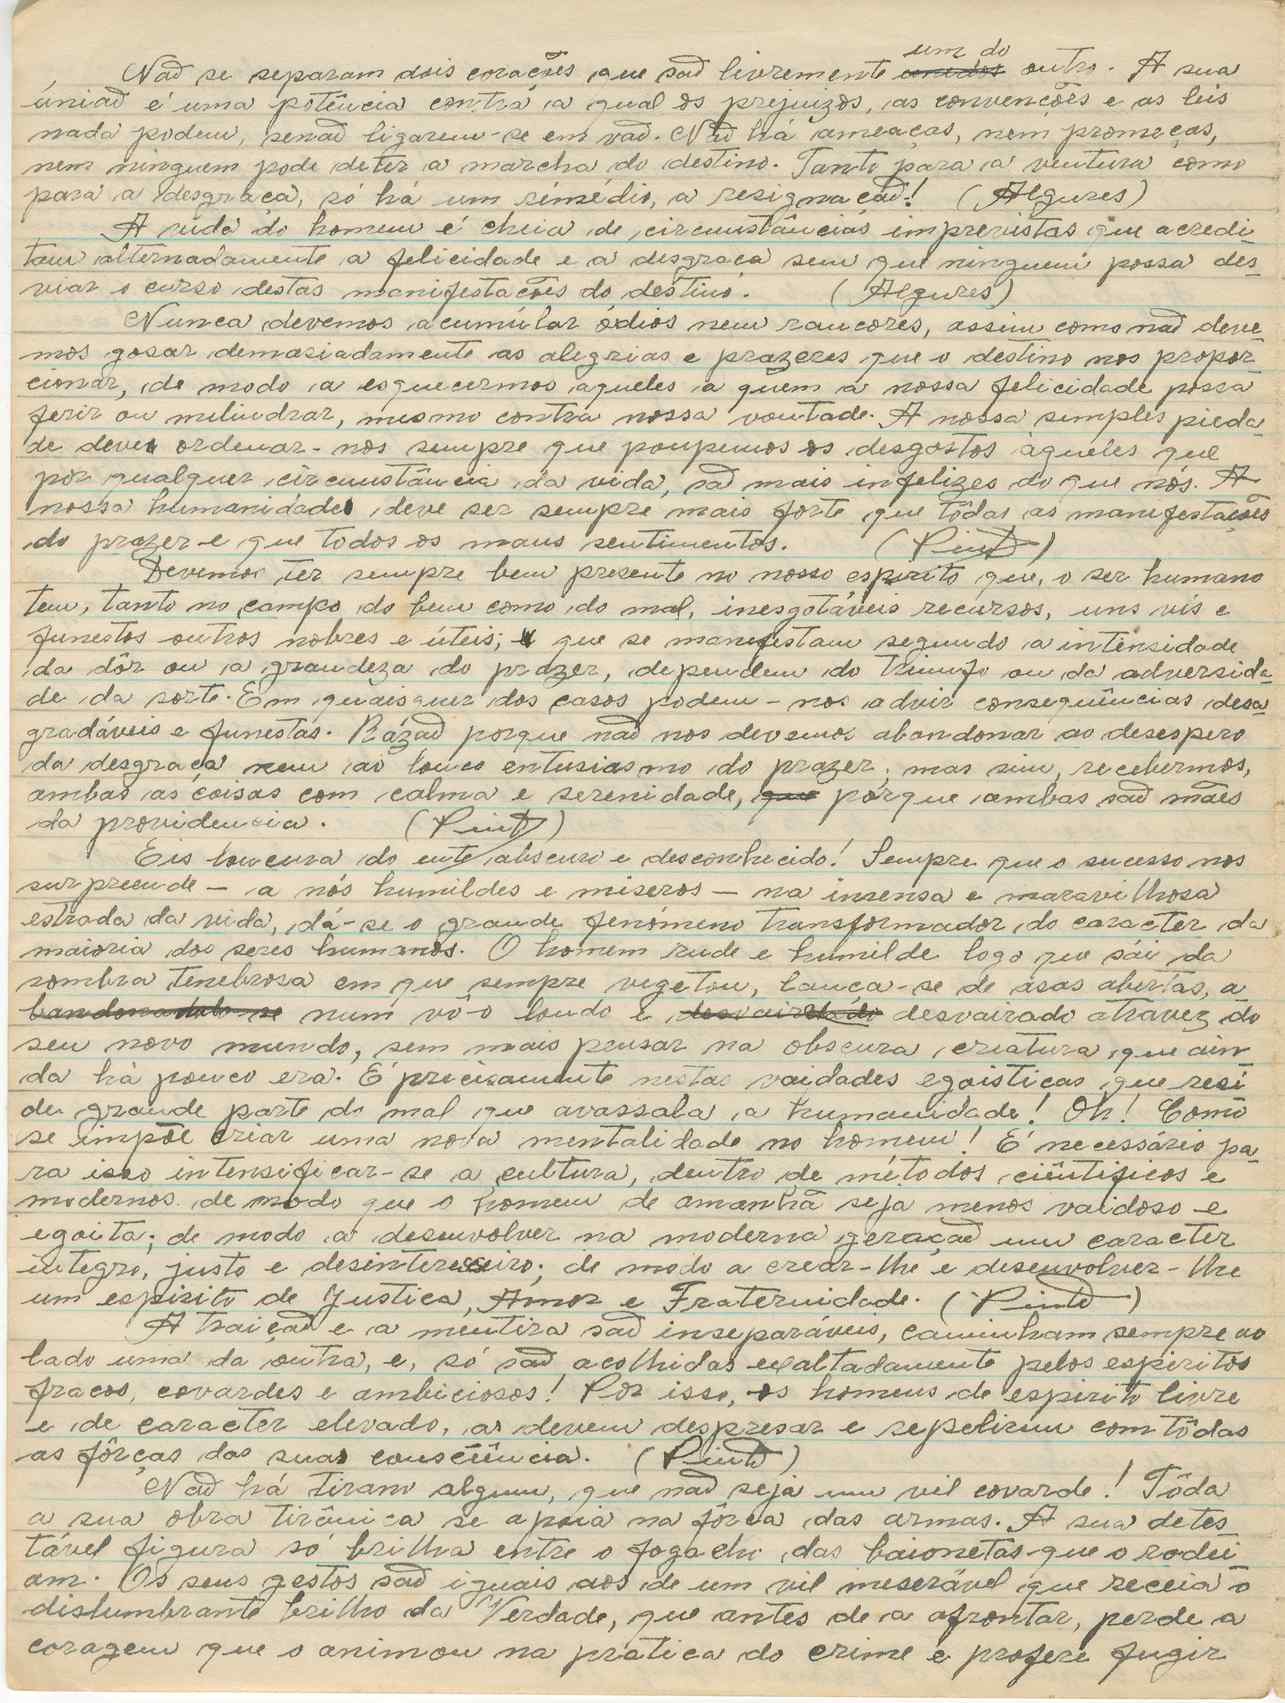 Não se separam dois corações que são livremente um do outro. A sua
úniaõ é uma potência contra a qual os prejuizos, as convenções e as leis
nada podem, senaõ ligarem-se em vaõ. Naõ há ameaças, nem promeças,
nem ninguem pode deter a marcha do destino. Tanto para a ventura como
para a desgraça, só há um rémédio, a resignaçaõ! (Algures)
A vida do homem é cheia de circunstâncias imprevistas que acredi
tam alternadamente a felicidade e a desgraça sem que ninguem possa des-
viar o curso destas manifestações do destino. (Algures)
Nunca devemos acumular ódios nem rancores, assim como naõ deve-
mos gosar demasiadamente as alegrias e prazeres que o destino nos propor-
cionar, de modo a esquecermos aqueles a quem a nossa felicidade possa
ferir ou melindrar, mesmo contra nossa vontade. A nossa simples pieda-
de deve ordenar-nos sempre que poupemos os desgostos àqueles que
por qualquer circunstância da vida, saõ mais infelizes do que nós. A
nossa humanidade deve ser sempre mais forte que tôdas as manifestações
do prazer e que todos os maus sentimentos. (Pinto)
Devemos ter sempre bem presente no nosso espirito que, o ser humano
tem, tanto no campo do bem como do mal, inesgotáveis recursos, uns vís e
funestos outros nobres e úteis; que se manifestam segundo a intensidade
da dôr ou a grandeza do prazer, dependem do triunfo ou da adversida-
de da sorte. Em quaisquer dos casos podem-nos advir consequências desa-
gradáveis e funestas. Rázaõ porque naõ nos devemos abandonar ao desespero
da desgraça nem ao louco entusiasmo do prazer; mas sim, recebermos,
ambas as coisas com calma e serenidade, porque ambas saõ mães
da providencia. (Pinto)
Eis loucura do ente obscuro e desconhecido! Sempre que o sucesso nos
surpreende - a nós humildes e miseros - na imensa e maravilhosa
estrada da vida, dá-se o grande fenómeno transformador do caracter da
maioria dos seres humanos. O homem rude e humilde logo que sái da
sombra tenebrosa em que sempre vegetou, lança-se de asas abertas, a
bandonadolo-se num vô-o loudo e desvairado atravez do
seu novo mundo, sem mais pensar na obscura criatura que ain
da há pouco era. É precisamente nestas vaidades egoisticas que resi
de grande parte do mal que avassala a humanidade! Oh! Como
se impõe criar uma nova mentalidade no homem! É necessário pa-
ra isso intensificar-se a cultura, dentro de métodos ciêntificos e
modernos de modo que o homem de amanhã seja menos vaidoso e
egoita; de modo a desenvolver na moderna geraçaõ um caracter
integro, justo e desintereceiro; de modo a crear-lhe e desenvolver-lhe
um espirito de Justiça, Amor e Fraternidade. (Pinto)
A traiçaõ e a mentira saõ inseparáveis, caminham sempre ao
lado uma da outra, e, só saõ acolhidas exaltadamente pelos espiritos
fracos, covardes e ambiciosos! Por isso, os homens de espirito livre
e de caracter elevado, as devem despresar e repelirem com tôdas
as fôrças das suas consciência. (Pinto)
Naõ há tirano algum, que naõ seja um vil covarde! Tôda
a sua obra tirânica se apoia na fôrça das armas. A sua detes-
tável figura só brilha entre o fogacho das baionetas que o rodei
am. Os seus gestos saõ iguais aos de um vil meserável que receia o
dislumbrante brilho da Verdade, que antes de a afrontar, perde a
coragem que o animou na pratica do crime e prefere fugir